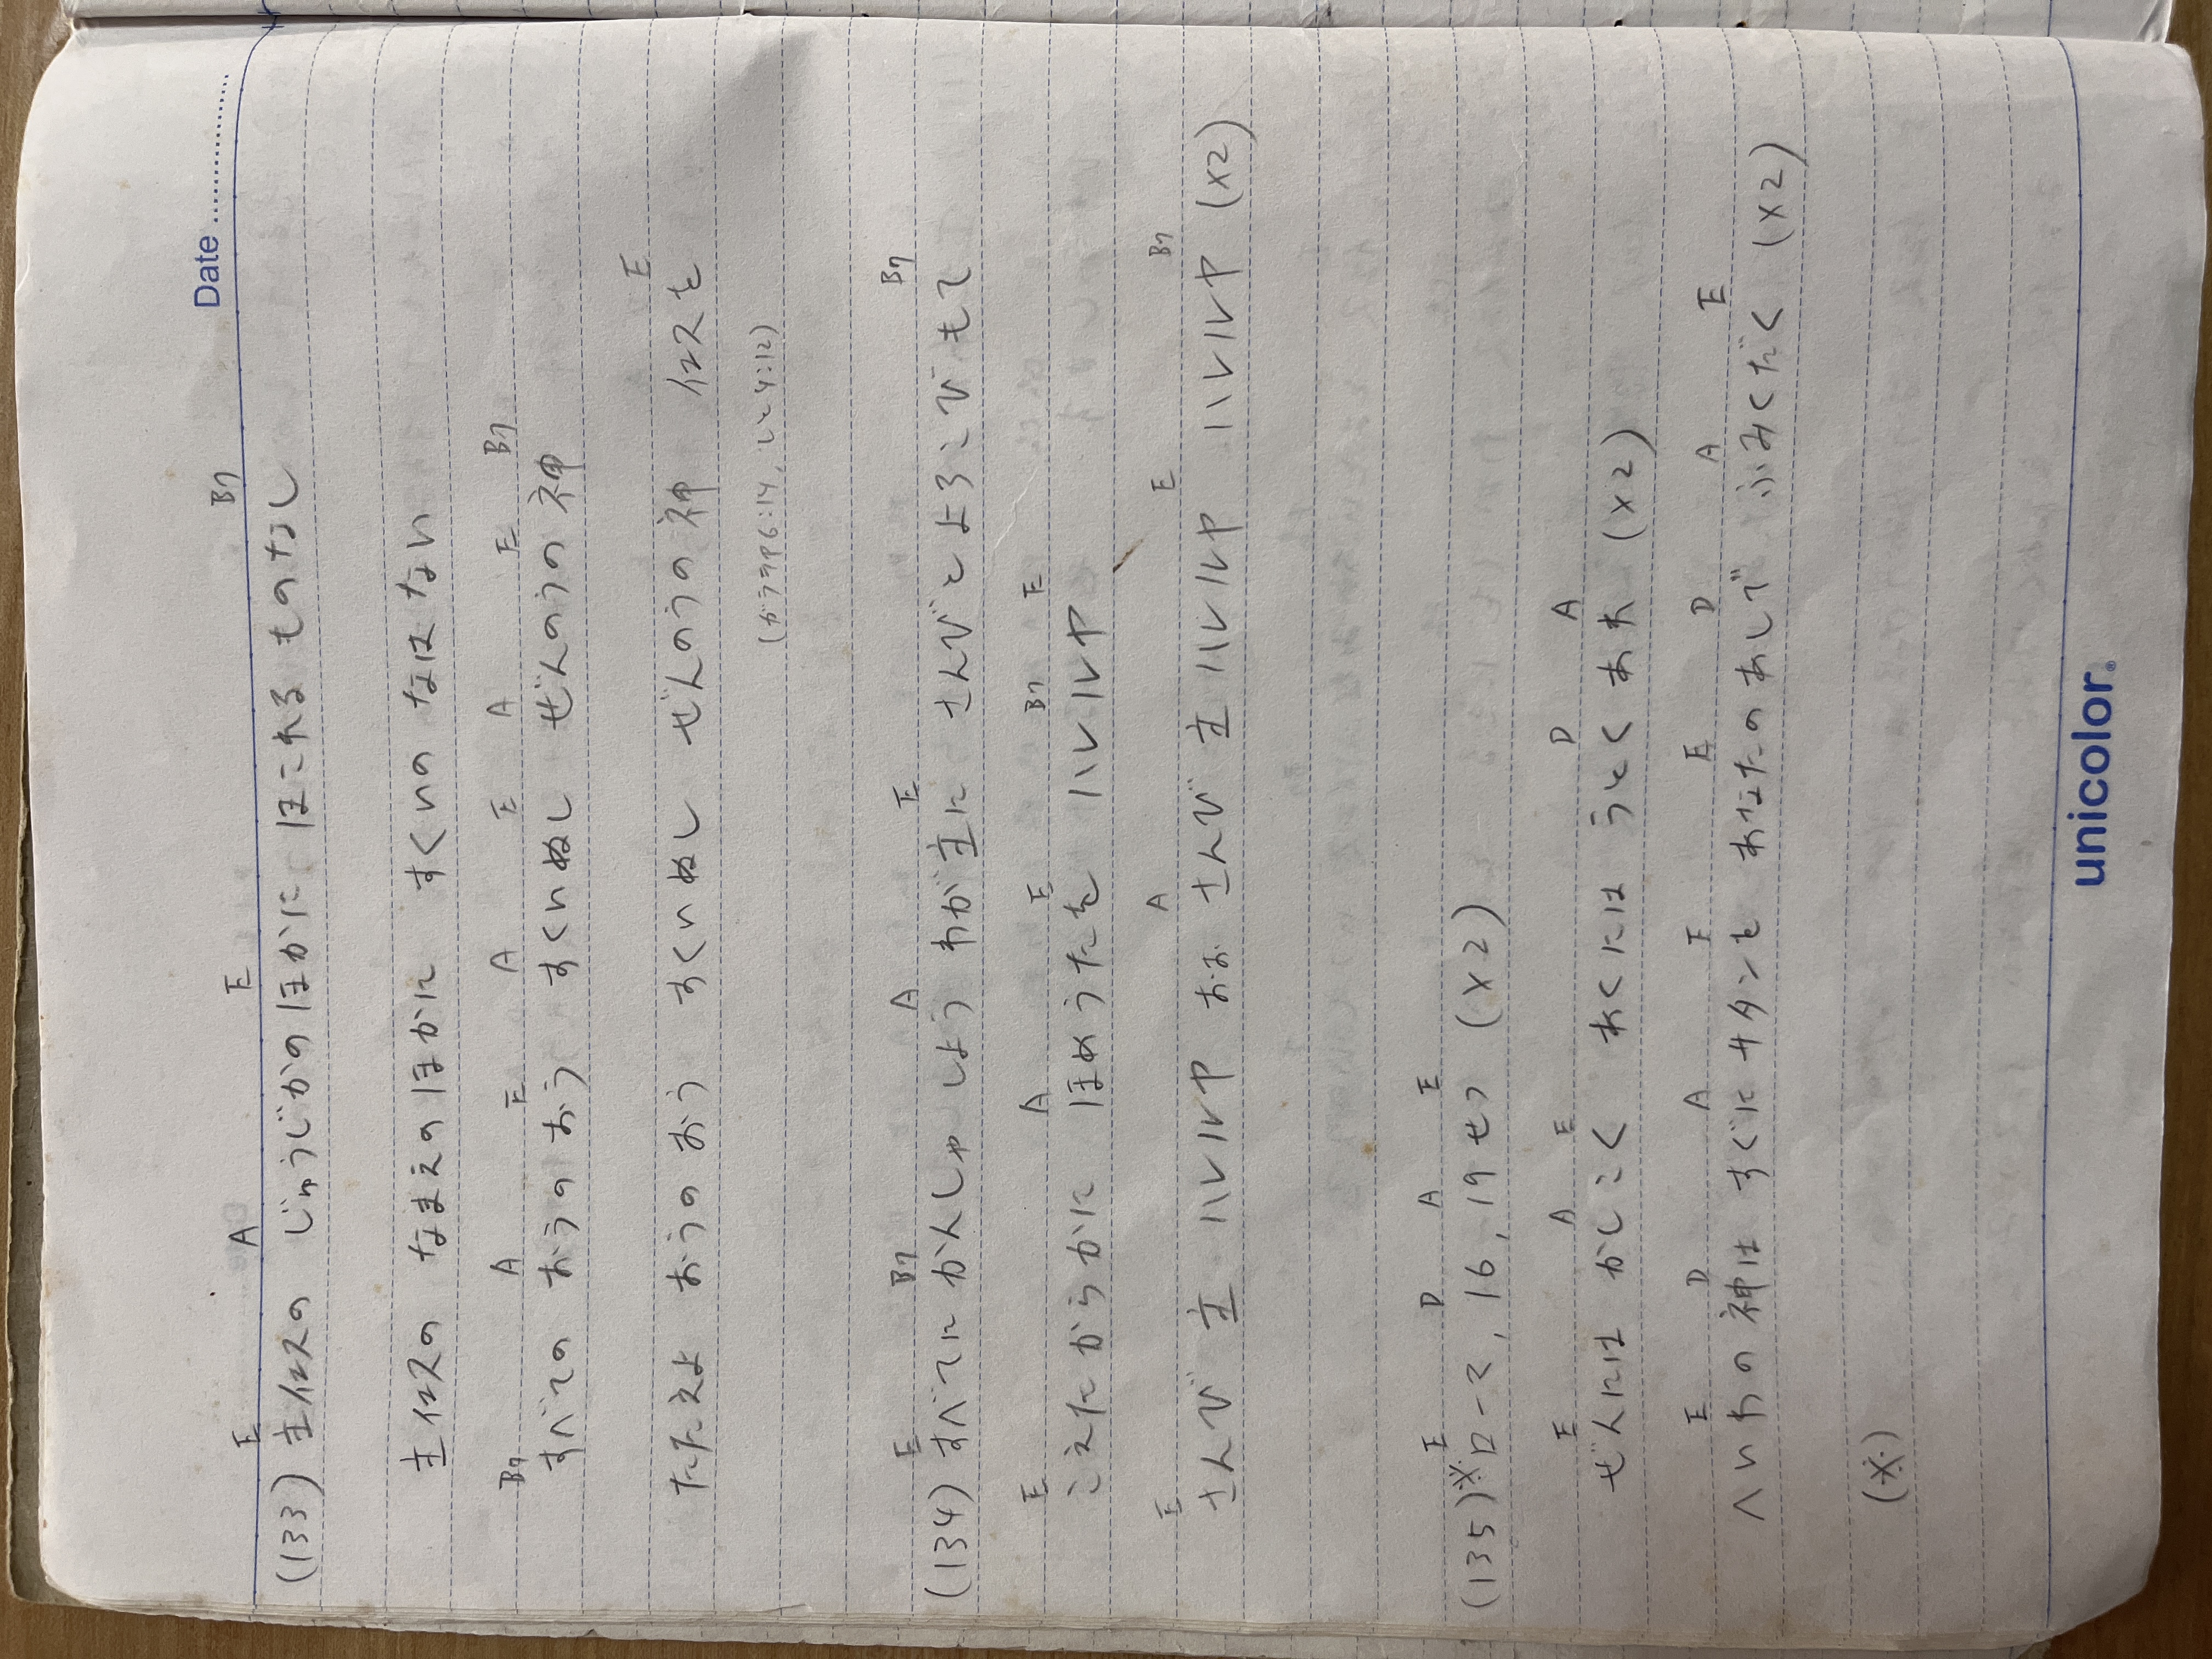 Date
E A E B7
(133) 主イエスの じゅうじかのほかに ほこれる ものなし
主イエスの なまえのほかに すくいの なはない
B7 A E A E A E B7
すべての おうのおう すくいぬし ぜんのうの神
E
たたえよ おうのおう すくいぬし ぜんのうの神 イエスを
(ガラテヤ6:14, しと4:12)
E B7 A E B7
(134) すべてに かんしゃしよう わが主に さんびと よろこびもて
E A E B7 E
こえたからかに ほめうたを ハレルヤ
E A E B7
さんび 主 ハレルヤ おお さんび 主 ハレルヤ ハレルヤ (×2)
E D A E
(135) ※ローマ, 16, 19せつ (×2)
E A E D A
ぜんには かしこく あくには うとくあれ (×2)
E D A E E D A E
へいわの神は すぐに サタンを あなたのあしで ふみくだく (×2)
(※)
unicolor®